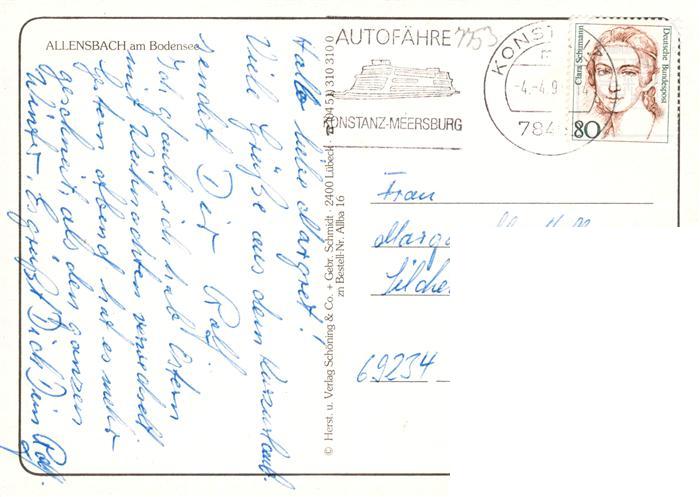 ALLENSBACH am Bodensee
Hallo liebe Margret!
Viele Grüße aus dem Kurzurlaub
sendet Dir Ralf
Ich glaube ich hab Ostern
mit Weihnachten verwechselt
Gestern abend hat es mehr
geschneit als den ganzen
Winter. Es grüßt Dich Dein Ralf.
© Herst. u. Verlag Schöning & Co. + Gebr. Schmidt · 2400 Lübeck · ☎ (04 51) 310 310 0
zn Bestell-Nr. Allba 16
AUTOFÄHRE
KONSTANZ-MEERSBURG
7753
KONST
-4.-4.9
784
Deutsche Bundespost
Clara Schumann
80
Frau
Marg
Silche
69234